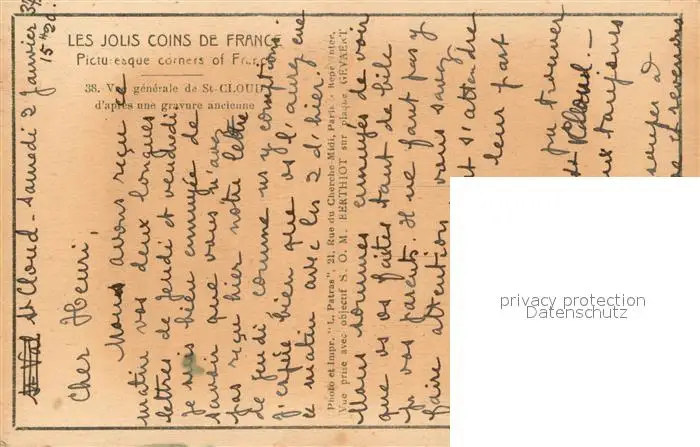 LES JOLIS COINS DE FRANCE
Picturesque corners of France
38. Vue générale de St-CLOUD
d'après une gravure ancienne
Photo et Impr. "L. Patras", 21, Rue du Cherche-Midi, Paris - Repr. Inter.
Vue prise avec objectif S. O. M. BERTHIOT sur plaque GEVAERT.
St Cloud - Samedi 2 Janvier
15H 20.
Cher Henri,
Nous avons reçu ce
matin vos deux longues
lettres de jeudi et vendredi
Je suis bien ennuyée de
savoir que vous n'avez
pas reçu hier notre lettre
de jeudi comme ns y comptions.
J'espère bien que vs l'aurez eue
ce matin avec les 2 d'hier.
Nous sommes ennuyés de voir
que vs vs faites tant de bile
pr vos parents. Il ne faut pas y
faire attention vous savez
s'attendre
leur part
trouver
St Cloud. -
toujours
souper à
privacy protection
Datenschutz